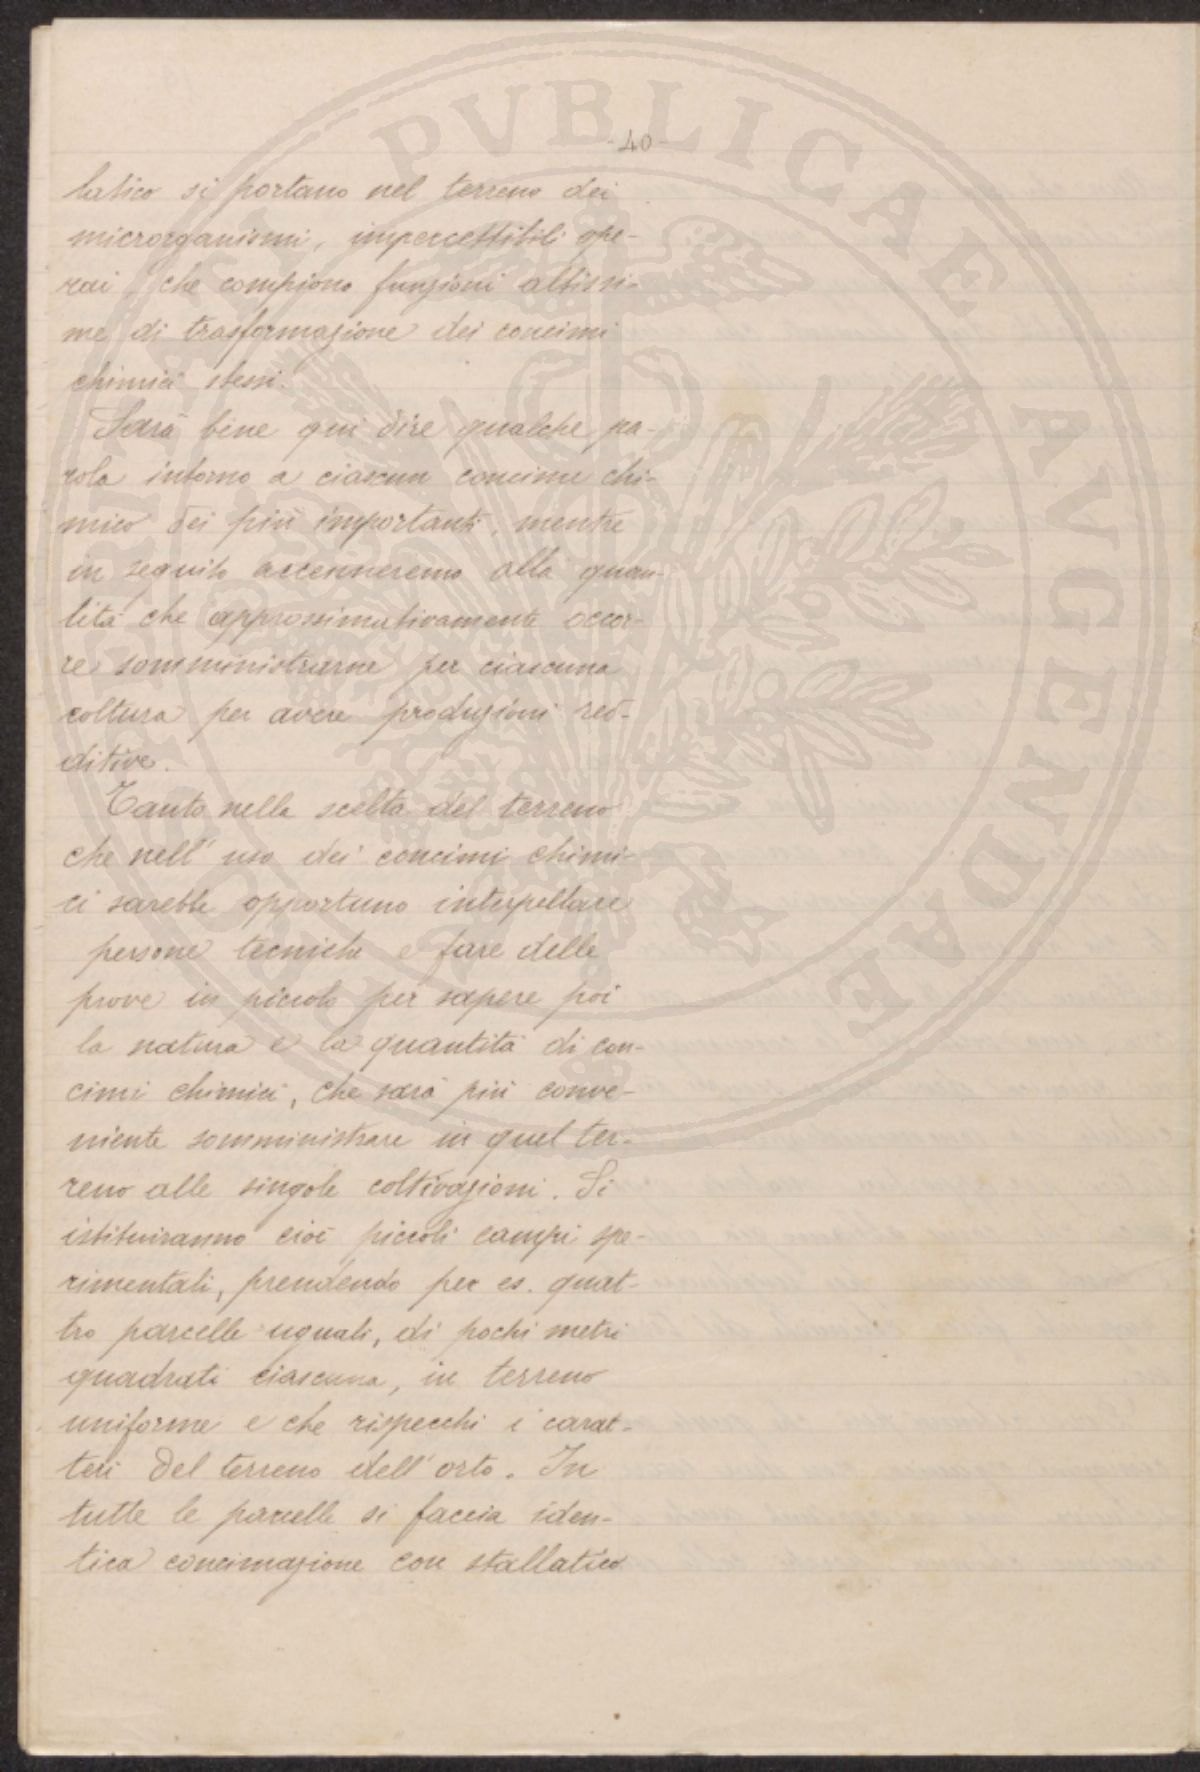 -40-
latico si portano nel terreno dei
microrganismi, impercettibili ope-
rai, che compiono funzioni altissi-
me di trasformazione dei concimi
chimici stessi.
Sarà bene qui dire qualche pa-
rola intorno a ciascun concime chi-
mico dei più importanti, mentre
in seguito accenneremo alla quan-
tità che approssimativamente occor-
re somministrarne per ciascuna
coltura per avere produzioni red-
ditive.
Tanto nella scelta del terreno
che nell'uso dei concimi chimi-
ci sarebbe opportuno interpellare
persone tecniche e fare delle
prove in piccolo per sapere poi
la natura e la quantità di con-
cimi chimici, che sarà più conve-
niente somministrare in quel ter-
reno alle singole coltivazioni. Si
istituiranno cioè piccoli campi spe-
rimentali, prendendo per es. quat-
tro parcelle uguali, di pochi metri
quadrati ciascuna, in terreno
uniforme e che rispecchi i carat-
teri del terreno dell'orto. In
tutte le parcelle si faccia iden-
tica concimazione con stallatico
PVBLICAE AVGENDAE